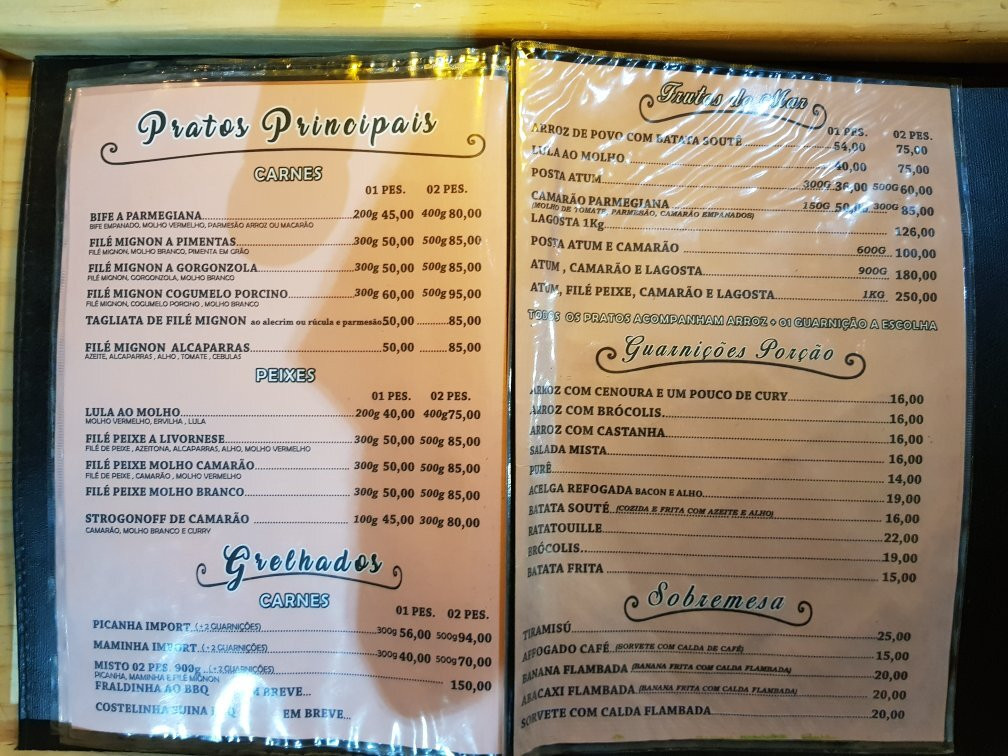 Pratos Principais
CARNES
01 PES. 02 PES.
BIFE A PARMEGIANA 200g 45,00 400g 80,00
BIFE EMPANADO, MOLHO VERMELHO, PARMESÃO ARROZ OU MACARÃO
FILÉ MIGNON A PIMENTAS 300g 50,00 500g 85,00
FILÉ MIGNON, MOLHO BRANCO, PIMENTA EM GRÃO
FILÉ MIGNON A GORGONZOLA 300g 50,00 500g 85,00
FILÉ MIGNON, GORGONZOLA, MOLHO BRANCO
FILÉ MIGNON COGUMELO PORCINO 300g 60,00 500g 95,00
FILÉ MIGNON, COGUMELO PORCINO, MOLHO BRANCO
TAGLIATA DE FILÉ MIGNON ao alecrim ou rúcula e parmesão 50,00 85,00
FILÉ MIGNON ALCAPARRAS 50,00 85,00
AZEITE, ALCAPARRAS, ALHO, TOMATE, CEBULAS
PEIXES
01 PES. 02 PES.
LULA AO MOLHO 200g 40,00 400g 75,00
MOLHO VERMELHO, ERVILHA, LULA
FILÉ PEIXE A LIVORNESE 300g 50,00 500g 85,00
FILÉ DE PEIXE, AZEITONA, ALCAPARRAS, ALHO, MOLHO VERMELHO
FILÉ PEIXE MOLHO CAMARÃO 300g 50,00 500g 85,00
FILÉ DE PEIXE, CAMARÃO, MOLHO VERMELHO
FILÉ PEIXE MOLHO BRANCO 300g 50,00 500g 85,00
STROGONOFF DE CAMARÃO 100g 45,00 300g 80,00
CAMARÃO, MOLHO BRANCO E CURRY
Grelhados
CARNES
01 PES. 02 PES.
PICANHA IMPORT (+2 GUARNIÇÕES) 300g 56,00 500g 94,00
MAMINHA IMPORT (+2 GUARNIÇÕES) 300g 40,00 500g 70,00
MISTO 02 PES. 900g (+2 GUARNIÇÕES) 150,00
PICANHA, MAMINHA E FILÉ MIGNON
FRALDINHA AO BBQ EM BREVE...
COSTELINHA SUINA EM BREVE...
Frutos do Mar
01 PES. 02 PES.
ARROZ DE POVO COM BATATA SOUTÊ 54,00 75,00
LULA AO MOLHO 40,00 75,00
POSTA ATUM 300G 36,00 500G 60,00
CAMARÃO PARMEGIANA 150G 50,00 300G 85,00
(MOLHO DE TOMATE, PARMESÃO, CAMARÃO EMPANADOS)
LAGOSTA 1Kg 126,00
POSTA ATUM E CAMARÃO 600G 100,00
ATUM, CAMARÃO E LAGOSTA 900G 180,00
ATUM, FILÉ PEIXE, CAMARÃO E LAGOSTA 1KG 250,00
TODOS OS PRATOS ACOMPANHAM ARROZ + 01 GUARNIÇÃO A ESCOLHA
Guarnições Porção
ARROZ COM CENOURA E UM POUCO DE CURY 16,00
ARROZ COM BRÓCOLIS 16,00
ARROZ COM CASTANHA 16,00
SALADA MISTA 16,00
PURÊ 14,00
ACELGA REFOGADA BACON E ALHO 19,00
BATATA SOUTÊ (COZIDA E FRITA COM AZEITE E ALHO) 16,00
RATATOUILLE 22,00
BRÓCOLIS 19,00
BATATA FRITA 15,00
Sobremesa
TIRAMISÚ 25,00
AFFOGADO CAFÉ (SORVETE COM CALDA DE CAFÉ) 15,00
BANANA FLAMBADA (BANANA FRITA COM CALDA FLAMBADA) 20,00
ABACAXI FLAMBADA (BANANA FRITA COM CALDA FLAMBADA) 20,00
SORVETE COM CALDA FLAMBADA 20,00